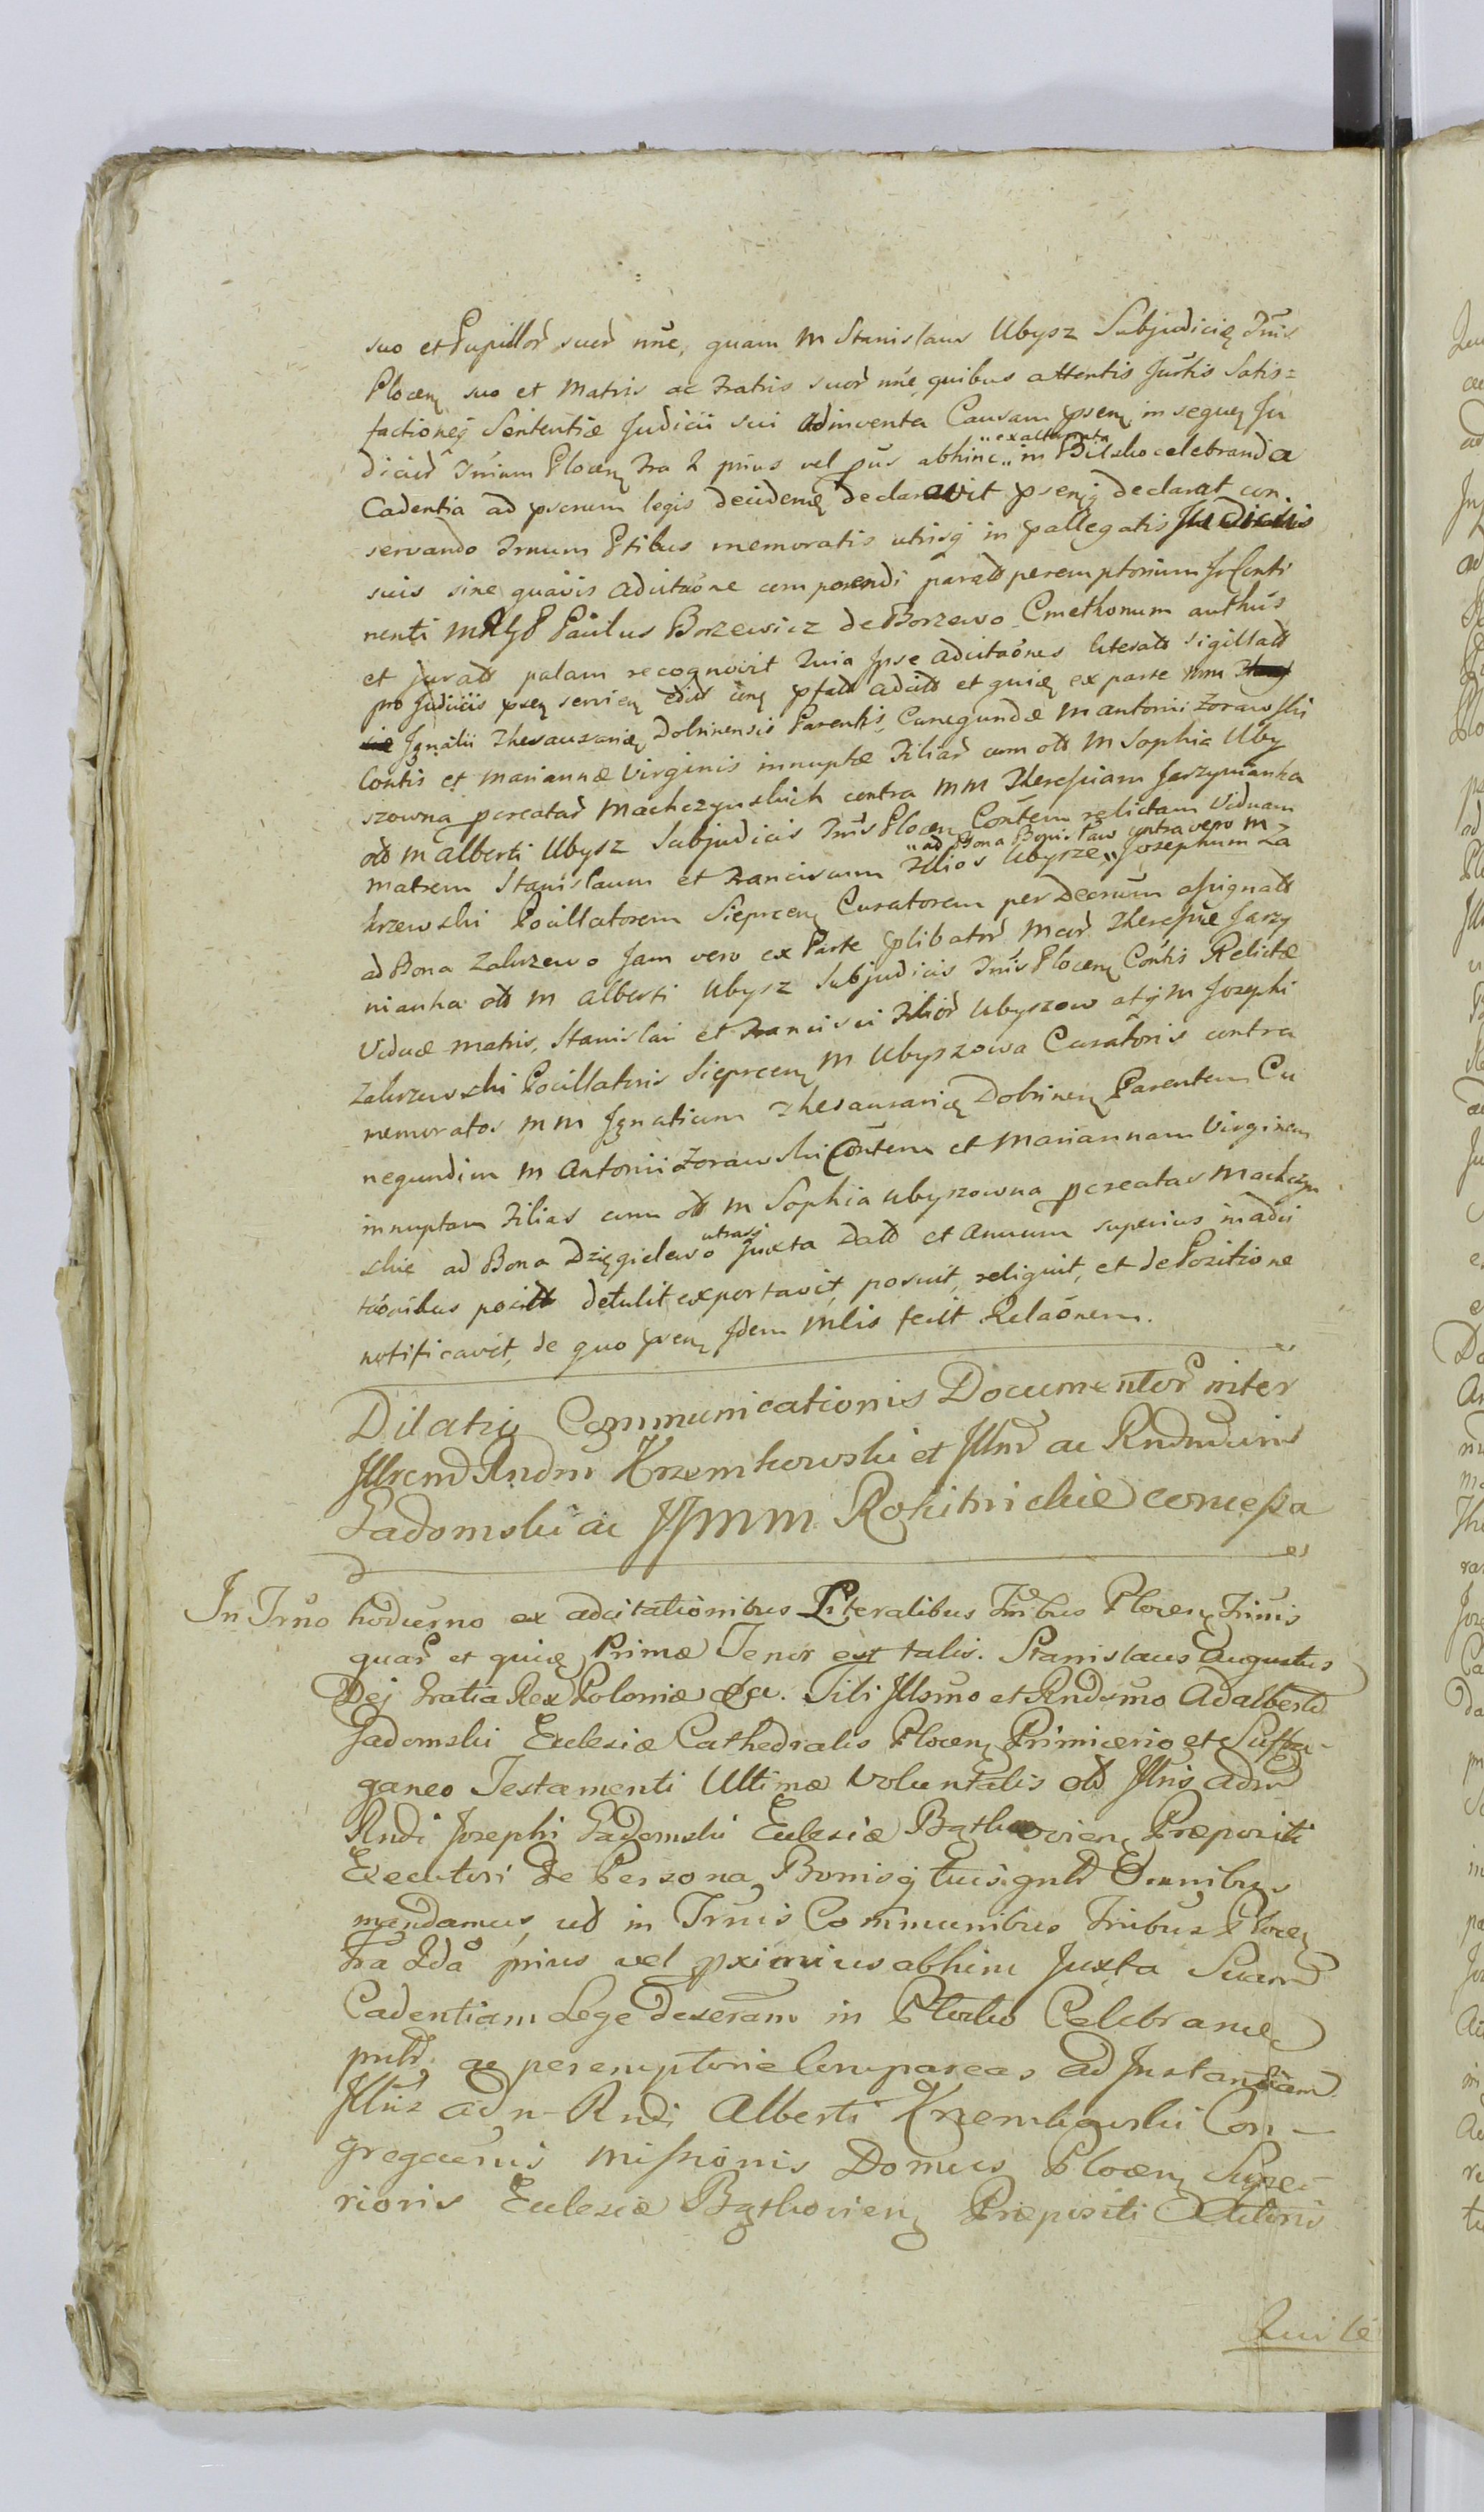 suo et Pupillor suor nñe, quam M Stanislaus Ubysz Subjudicię Trñis
Plocen suo et Matris ac Fratris suor nñe, quibus attentis Justis Satis=
factioneq Sententiæ Judicii sui adinventa Causam psen in sequen Ju
dicior Trñium Plocen Fra 2 prius vel pus abhinc „exalternata„ in Bilsko celebranda
Cadentia ad pscrum legis decidenę declaravit psenq declarat con
servando Trnum Ptibus memoratis utrisq in pallegatis Judiciis
suis sine quavis adcitaõne comparendi parad peremptorium In conti
nenti Paulus Borzewicz de Borzewo Cmethonum authus
et jurad palam recognovit Quia Ipse adcitaones literad sigillad
pro Judiciis psen servien edid pfad adcid et quię ex parte MM
Ignatii Thesaurarię Dobrinensis Parentis, Cunegundæ M Antonii Zorawski
Contis et Mariannæ Virginis innuptæ Filiar cum od M Sophia Uby
szowna pcreatar Machczynskich contra MM Theresiam Jarzynianka
od M Alberti Ubysz Subjudicis Trñis Plocen Contem relictam Viduam
Matrem Stanislaum et Franciscum Filios Ubysze „ad Bona contra vero M„ Josephum Za
krzewski Pocillatorem Sieprcen Curatorem per Decrum assignad
ad Bona Zakrzewo Jam vero ex Parte plibator Mcor Theresiæ Jarzy
nianka od M Alberti Ubysz Subjudicis Trñis Plocen Contis Relictæ
Viduæ Matris, Stanislai et Francisci Filior Ubyszow atq M Josephi
Zakrzewski Pocillatoris Sieprcen M Ubyszowa Curatoris contra
memoratos MM Ignatium Thesaurarię Dobrinen Parentem Cu
negundim M Antonii Zorawski Contem et Mariannam Virginem
innuptam Filias cum od M Sophia Ubyszowna pcreatas Machczyn
skie ad Bona Dzięgielewo utrasq Juxta Dad et Annum superius in adci
taõnibus posid detulit exportavit, posuit, reliquit, et de Positione
notificavit, de quo psen Idem Mlis fecit Relaõnem.
Dilatio Communicationis Documentor inter
Illrem Rndm Krzemkowski et Illm ac Rndmum
Gadomski ac JJMM Rokitnickie concessa
In Trno hodierno ex adcitationibus Literalibus Trribus Plocen Trinis
quar et quię Primæ Tenor est talis. Stanislaus Augustus
Dej Gratia Rex Poloniæ &c. Tibi Illsmo et Rndsmo Adalberto
Gadomski Eclesiæ Cathedralis Plocen Primicerio et Suffra-
ganeo Testamenti Ultimæ Voluntatis od Illris adm
Rndi Josephi Gadomski Eclesiæ Præpositi
Executori de Persona Bonisq tuis gnlr Omnibus
mandamus, ud in Trnis Communibus Trribus Plocen
Fra 2da prius vel pximius abhinc Juxta Suam
Cadentiam Lege in Plocko Celebran
pntr, ac peremptorie Compareas ad Instantiam
Illris adm Rndi Alberti Krzemkowski Con-
gregaonis Missionis Domus Plocen Supe-
rioris Eclesiæ Præpositi Actoris
Qui te